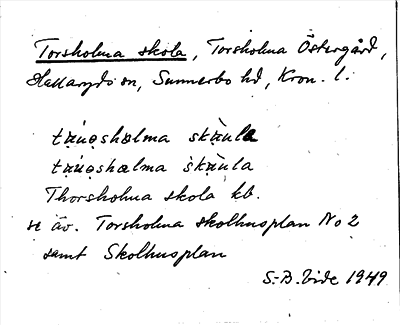 Torsholma skola, Torsholma Östergård,
Hallaryds sn, Sunnerbo hd, Kron. l.
tu̯úo̯shælma skæ̀ula
tu̯úo̯shælma skæ̀ula
Thorsholma skola kb.
se äv. Torsholma skolhusplan No 2
samt Skolhusplan
S.-B. Vide 1949